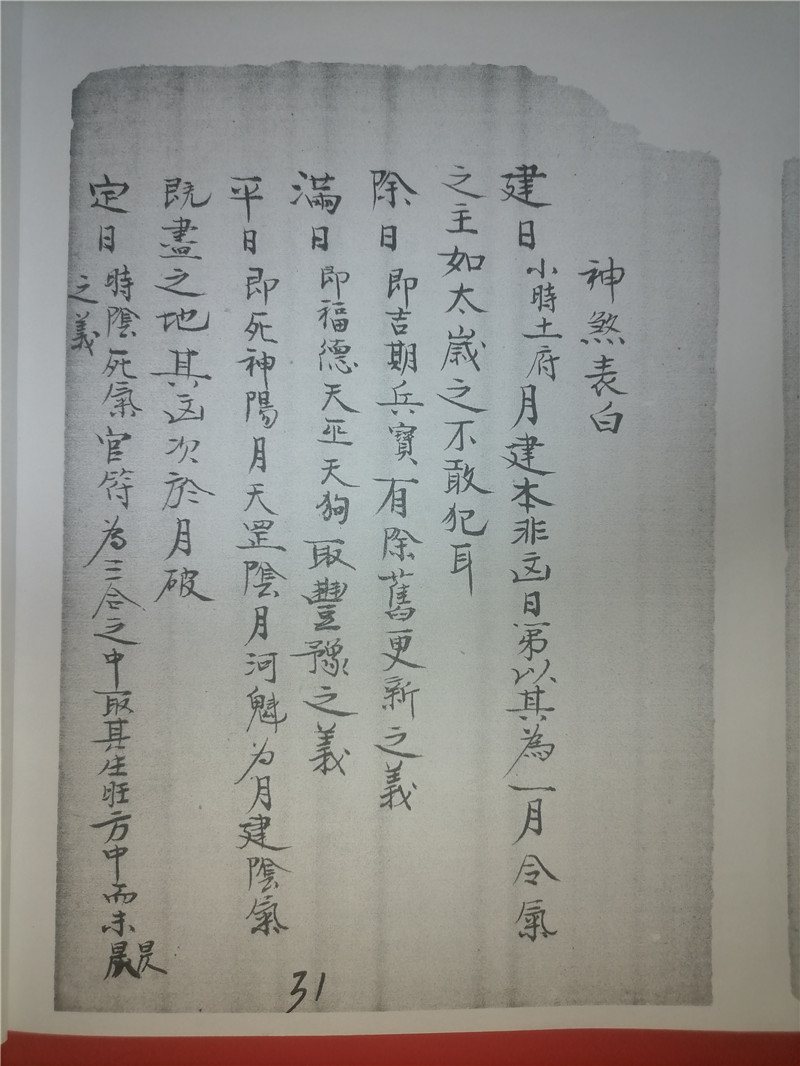 神煞表白
建日小時土府月建本非凶日第以其為一月令氣
之主如太歲之不敢犯耳
除日即吉期兵寶有除舊更新之義
滿日即福德天巫天狗取豐豫之義
平日即死神陽月天罡陰月河魁為月建陰氣
既盡之地其凶次於月破
定日時陰死氣官符為三合之中取其生旺方中而未昃
之義
31